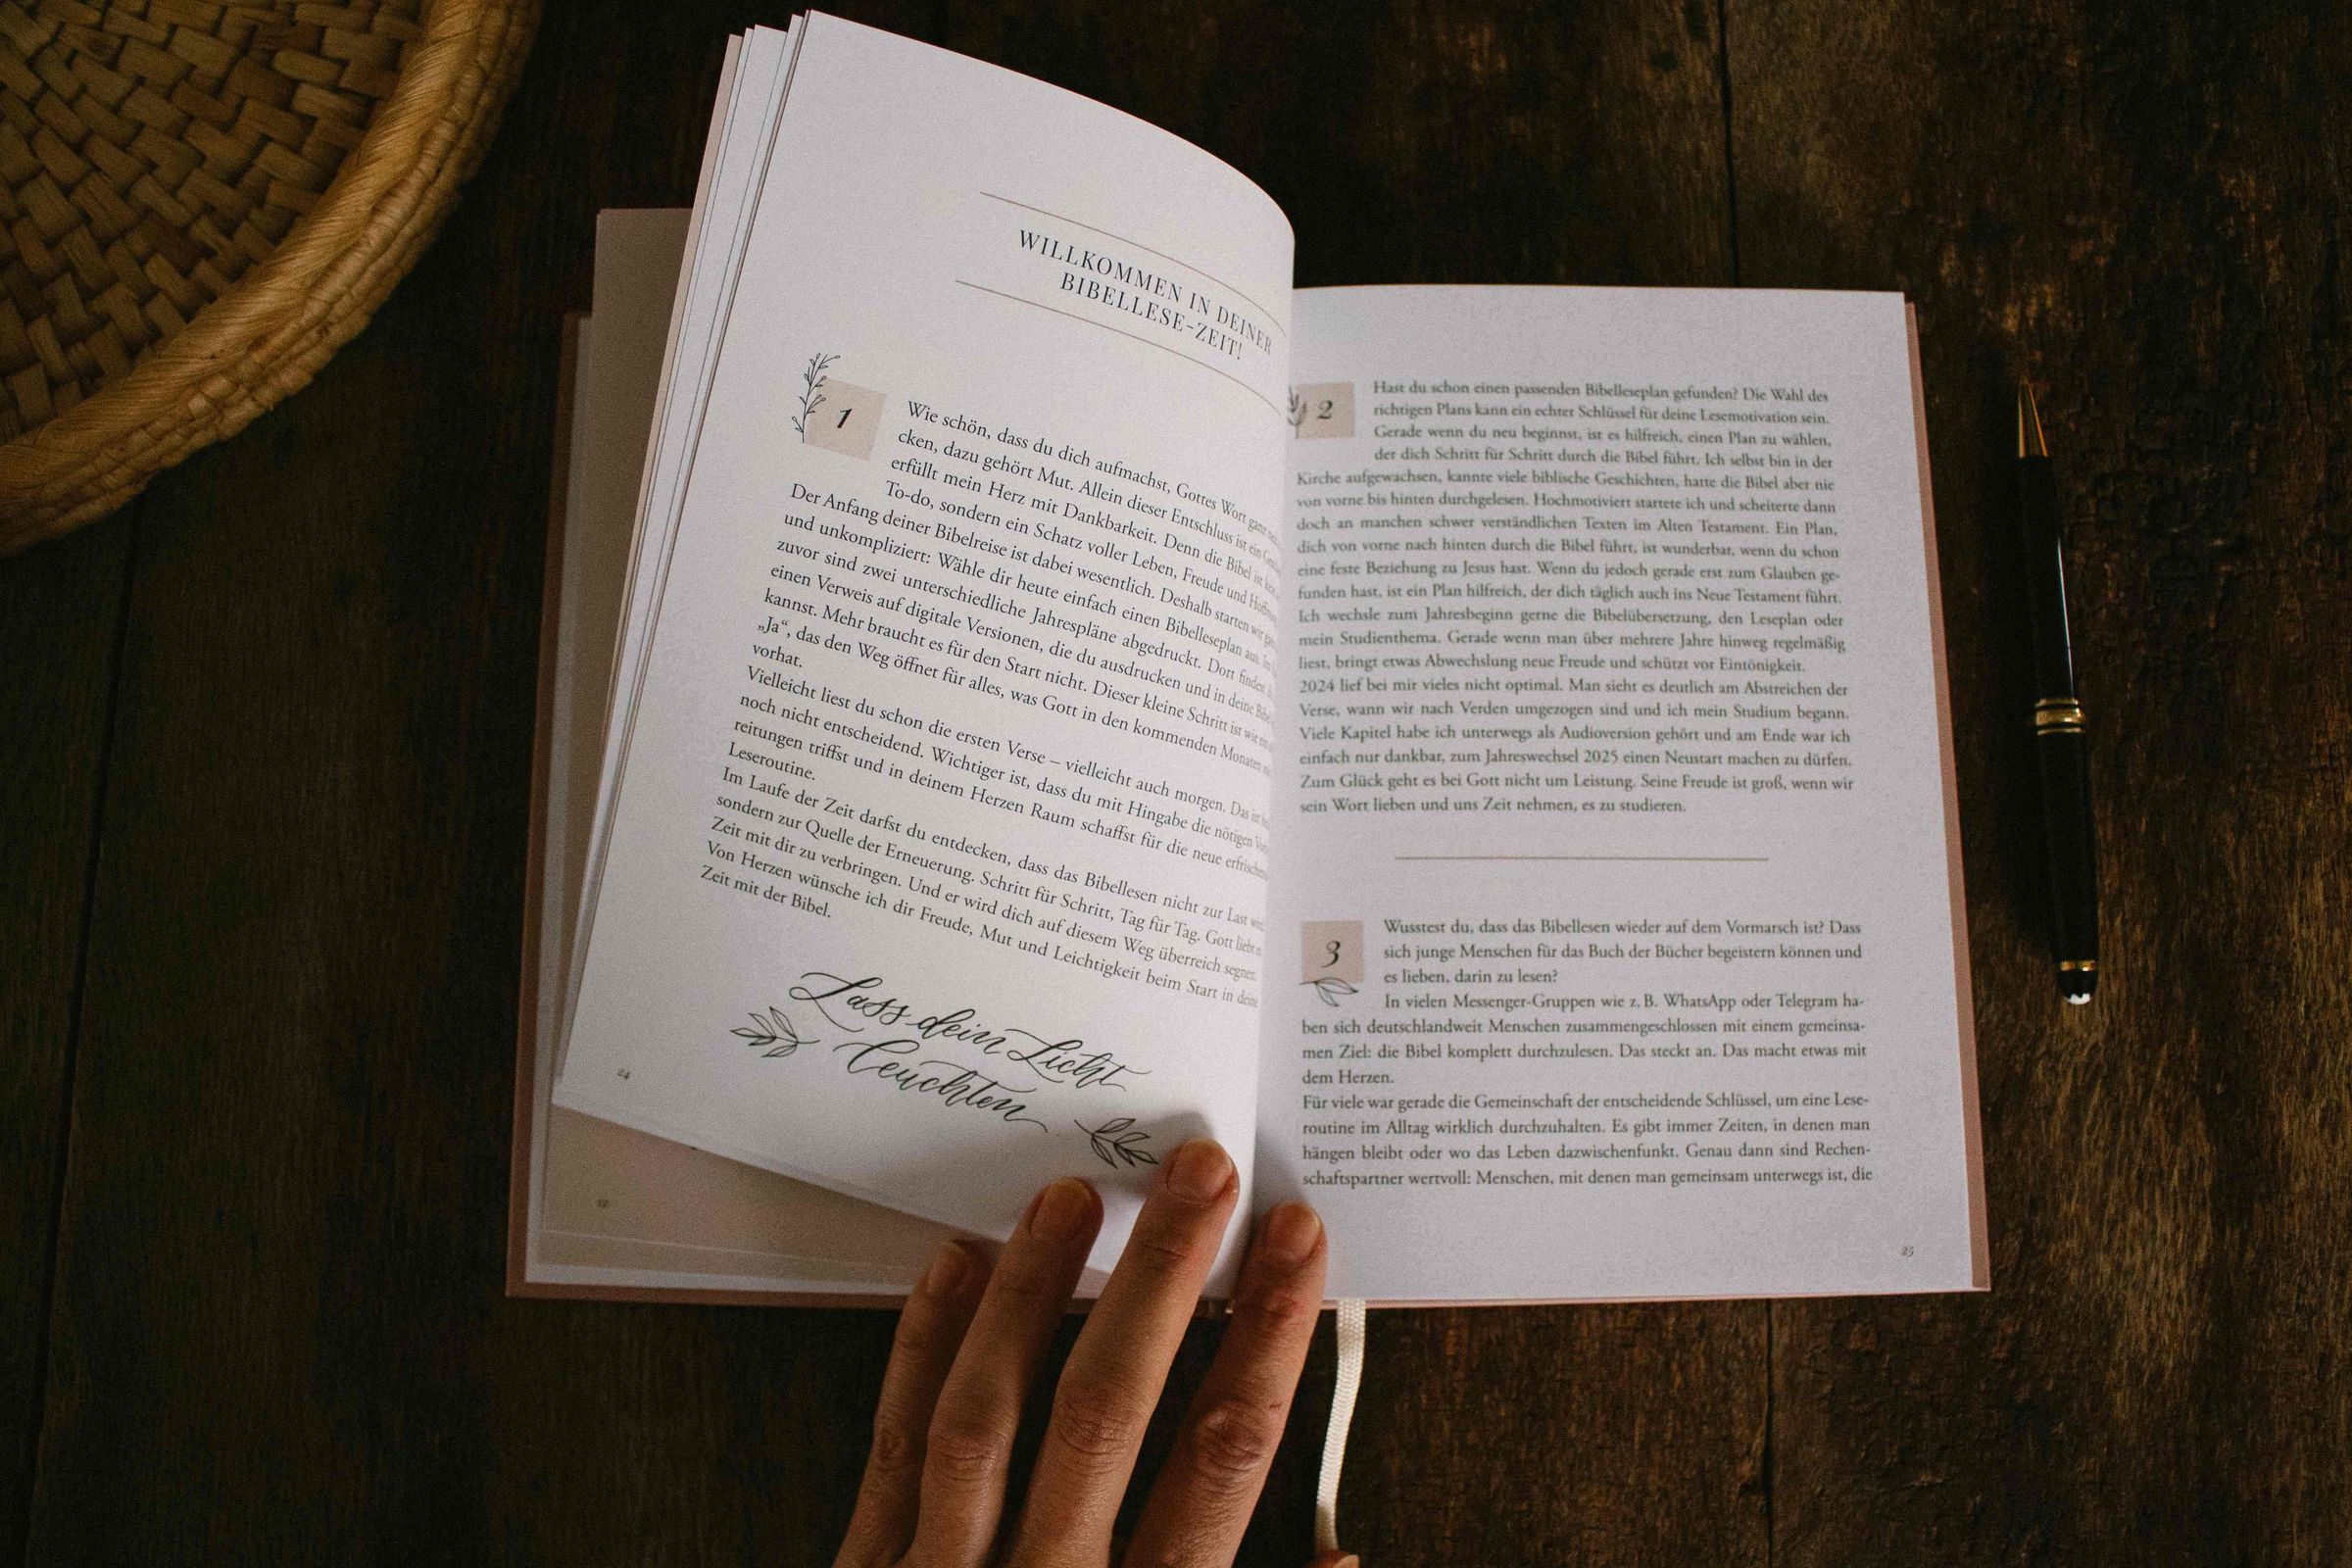 WILLKOMMEN IN DEINER
BIBELLESE-ZEIT!
1
Wie schön, dass du dich aufmachst, Gottes Wort ganz
cken, dazu gehört Mut. Allein dieser Entschluss ist ein
erfüllt mein Herz mit Dankbarkeit. Denn die Bibel ist
To-do, sondern ein Schatz voller Leben, Freude und
Der Anfang deiner Bibelreise ist dabei wesentlich. Deshalb starten wir
und unkompliziert: Wähle dir heute einfach einen Bibelleseplan aus.
zuvor sind zwei unterschiedliche Jahrespläne abgedruckt. Dort
einen Verweis auf digitale Versionen, die du ausdrucken und in deine
kannst. Mehr braucht es für den Start nicht. Dieser kleine Schritt ist wie
„Ja“, das den Weg öffnet für alles, was Gott in den kommenden Monaten
vorhat.
Vielleicht liest du schon die ersten Verse – vielleicht auch morgen. Das ist
noch nicht entscheidend. Wichtiger ist, dass du mit Hingabe die nötigen
reitungen triffst und in deinem Herzen Raum schaffst für die neue
Leseroutine.
Im Laufe der Zeit darfst du entdecken, dass das Bibellesen nicht zur Last
sondern zur Quelle der Erneuerung. Schritt für Schritt, Tag für Tag. Gott liebt
Zeit mit dir zu verbringen. Und er wird dich auf diesem Weg überreich segnen.
Von Herzen wünsche ich dir Freude, Mut und Leichtigkeit beim Start in
Zeit mit der Bibel.
Lass dein Licht
leuchten
24
2
Hast du schon einen passenden Bibelleseplan gefunden? Die Wahl des
richtigen Plans kann ein echter Schlüssel für deine Lesemotivation sein.
Gerade wenn du neu beginnst, ist es hilfreich, einen Plan zu wählen,
der dich Schritt für Schritt durch die Bibel führt. Ich selbst bin in der
Kirche aufgewachsen, kannte viele biblische Geschichten, hatte die Bibel aber nie
von vorne bis hinten durchgelesen. Hochmotiviert startete ich und scheiterte dann
doch an manchen schwer verständlichen Texten im Alten Testament. Ein Plan,
dich von vorne nach hinten durch die Bibel führt, ist wunderbar, wenn du schon
eine feste Beziehung zu Jesus hast. Wenn du jedoch gerade erst zum Glauben ge-
funden hast, ist ein Plan hilfreich, der dich täglich auch ins Neue Testament führt.
Ich wechsle zum Jahresbeginn gerne die Bibelübersetzung, den Leseplan oder
mein Studienthema. Gerade wenn man über mehrere Jahre hinweg regelmäßig
liest, bringt etwas Abwechslung neue Freude und schützt vor Eintönigkeit.
2024 lief bei mir vieles nicht optimal. Man sieht es deutlich am Abstreichen der
Verse, wann wir nach Verden umgezogen sind und ich mein Studium begann.
Viele Kapitel habe ich unterwegs als Audioversion gehört und am Ende war ich
einfach nur dankbar, zum Jahreswechsel 2025 einen Neustart machen zu dürfen.
Zum Glück geht es bei Gott nicht um Leistung. Seine Freude ist groß, wenn wir
sein Wort lieben und uns Zeit nehmen, es zu studieren.
3
Wusstest du, dass das Bibellesen wieder auf dem Vormarsch ist? Dass
sich junge Menschen für das Buch der Bücher begeistern können und
es lieben, darin zu lesen?
In vielen Messenger-Gruppen wie z. B. WhatsApp oder Telegram ha-
ben sich deutschlandweit Menschen zusammengeschlossen mit einem gemeinsa-
men Ziel: die Bibel komplett durchzulesen. Das steckt an. Das macht etwas mit
dem Herzen.
Für viele war gerade die Gemeinschaft der entscheidende Schlüssel, um eine Lese-
routine im Alltag wirklich durchzuhalten. Es gibt immer Zeiten, in denen man
hängen bleibt oder wo das Leben dazwischenfunkt. Genau dann sind Rechen-
schaftspartner wertvoll: Menschen, mit denen man gemeinsam unterwegs ist, die
25